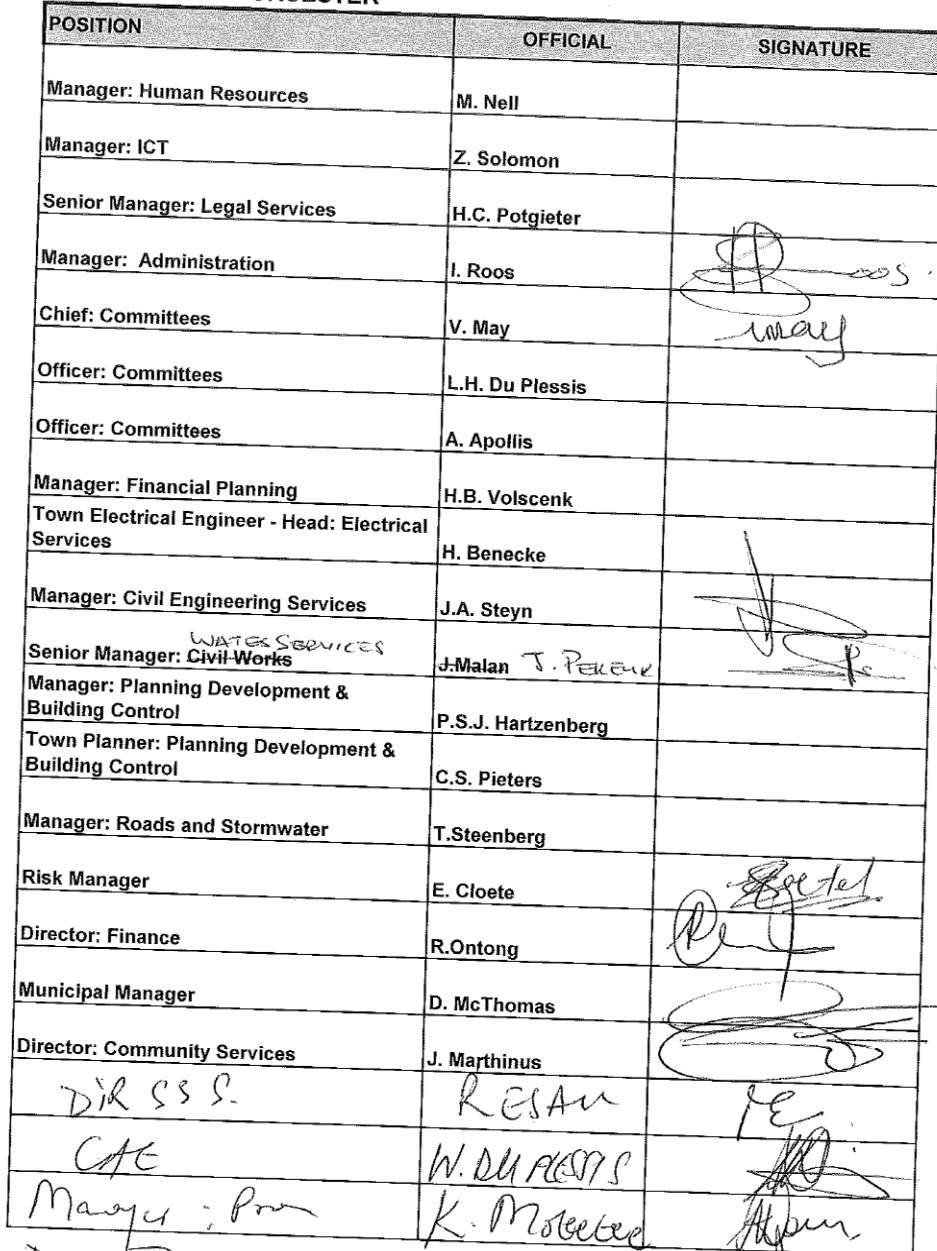 POSITION OFFICIAL SIGNATURE
Manager: Human Resources M. Nell
Manager: ICT Z. Solomon
Senior Manager: Legal Services H.C. Potgieter
Manager: Administration I. Roos
Chief: Committees V. May may
Officer: Committees L.H. Du Plessis
Officer: Committees A. Apollis
Manager: Financial Planning H.B. Volscenk
Town Electrical Engineer - Head: Electrical
Services H. Benecke
Manager: Civil Engineering Services J.A. Steyn
WATER SERVICES
Senior Manager: Civil Works J.Malan J.
Manager: Planning Development &
Building Control P.S.J. Hartzenberg
Town Planner: Planning Development &
Building Control C.S. Pieters
Manager: Roads and Stormwater T.Steenberg
Risk Manager E. Cloete
Director: Finance R.Ontong
Municipal Manager D. McThomas
Director: Community Services J. Marthinus
DIR SSS. RESAU
CAE W. DU PLESSIS
Manager: K.